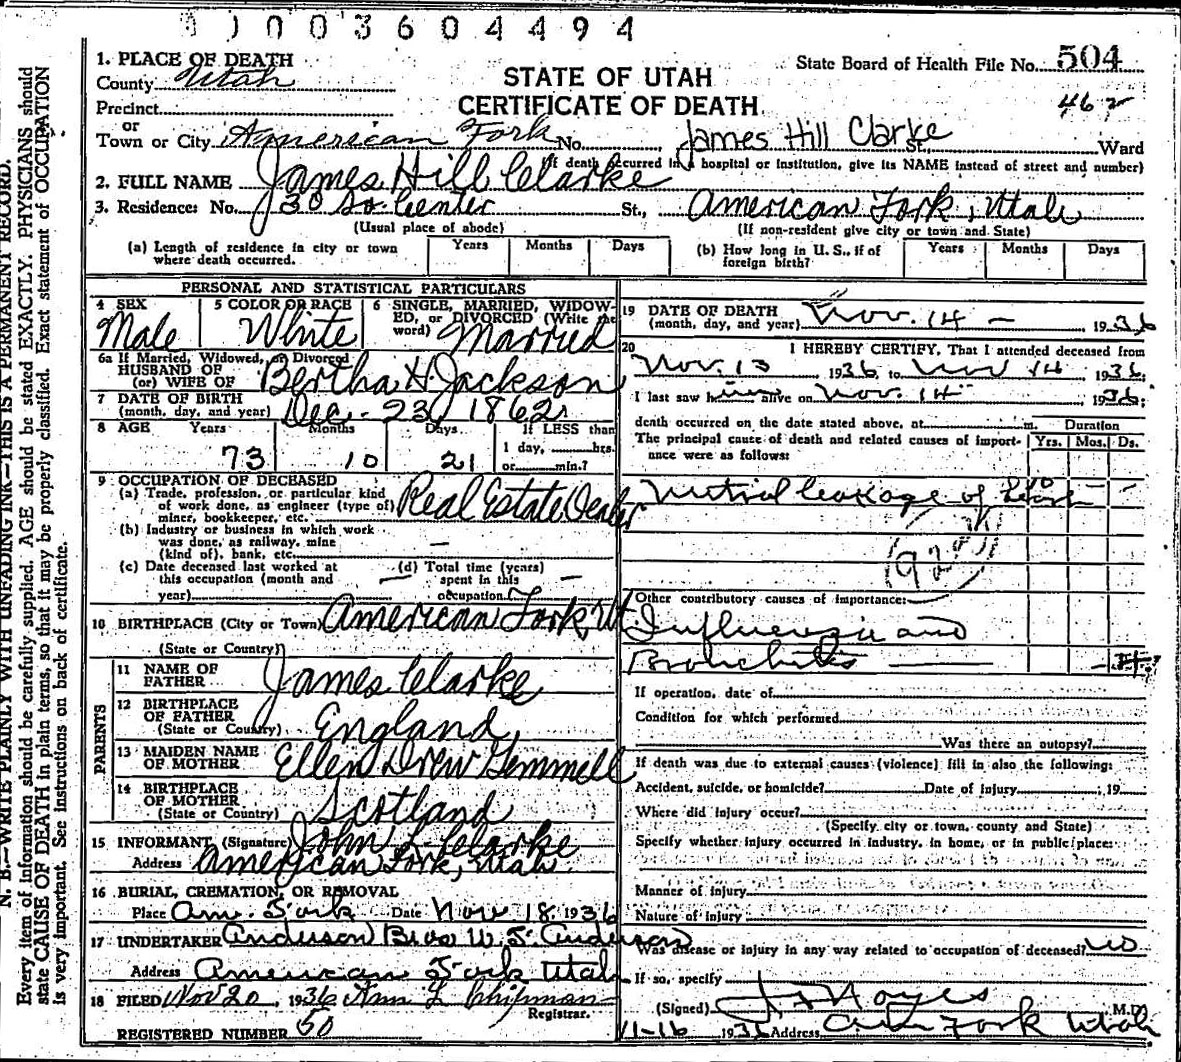 003604494
1. PLACE OF DEATH
County Utah
Precinct
or
Town or City American Fork No. St., Ward
James Hill Clarke
STATE OF UTAH
CERTIFICATE OF DEATH
State Board of Health File No. 504
462
(If death occurred in a hospital or institution, give its NAME instead of street and number)
2. FULL NAME James Hill Clarke
3. Residence: No. 30 So. Center St., American Fork, Utah
(Usual place of abode) (If non-resident give city or town and State)
(a) Length of residence in city or town where death occurred. Years Months Days
(b) How long in U. S., if of foreign birth? Years Months Days
PERSONAL AND STATISTICAL PARTICULARS
4 SEX Male
5 COLOR OR RACE White
6 SINGLE, MARRIED, WIDOWED, or DIVORCED (Write the word) Married
6a If Married, Widowed, or Divorced
HUSBAND OF
(or) WIFE OF Bertha H Jackson
7 DATE OF BIRTH
(month, day, and year) Dec - 23, 1862
8 AGE Years Months Days If LESS than
1 day, hrs.
73 10 21 or min.?
9 OCCUPATION OF DECEASED
(a) Trade, profession, or particular kind
of work done, as engineer (type of)
miner, bookkeeper, etc. Real Estate Dealer
(b) Industry or business in which work
was done, as railway, mine
(kind of), bank, etc. —
(c) Date deceased last worked at
this occupation (month and
year) —
(d) Total time (years)
spent in this
occupation —
10 BIRTHPLACE (City or Town) American Fork, Ut
(State or Country)
PARENTS
11 NAME OF
FATHER James Clarke
12 BIRTHPLACE
OF FATHER
(State or Country) England
13 MAIDEN NAME
OF MOTHER Ellen Drew Gemmell
14 BIRTHPLACE
OF MOTHER
(State or Country) Scotland
15 INFORMANT (Signature) John L. Clarke
Address American Fork, Utah.
16 BURIAL, CREMATION, OR REMOVAL
Place Am. Fork Date Nov 18, 1936
17 UNDERTAKER Anderson Bros W. J. Anderson
Address American Fork Utah
18 FILED Nov 20, 1936 Ann L Chipman
Registrar.
REGISTERED NUMBER 50
19 DATE OF DEATH
(month, day, and year) Nov. 14 - 1936
20 I HEREBY CERTIFY, That I attended deceased from
Nov. 13 1936 to Nov 14 1936;
I last saw him alive on Nov. 14 1936;
death occurred on the date stated above, at m. Duration
The principal cause of death and related causes of importance were as follows: Yrs. Mos. Ds.
Mitral leakage of heart 10 — —
Other contributory causes of importance:
Influenza and
Bronchitis
If operation, date of
Condition for which performed
Was there an autopsy?
If death was due to external causes (violence) fill in also the following:
Accident, suicide, or homicide? Date of injury , 19
Where did injury occur?
(Specify city or town, county and State)
Specify whether injury occurred in industry, in home, or in public place:
Manner of injury
Nature of injury
Was disease or injury in any way related to occupation of deceased? no
If so, specify
(Signed) Noyes M.D.
11-16 1936 Address Am Fork Utah
N. B.—WRITE PLAINLY WITH UNFADING INK—THIS IS A PERMANENT RECORD.
Every item of information should be carefully supplied. AGE should be stated EXACTLY. PHYSICIANS should
state CAUSE OF DEATH in plain terms, so that it may be properly classified. Exact statement of OCCUPATION
is very important. See instructions on back of certificate.